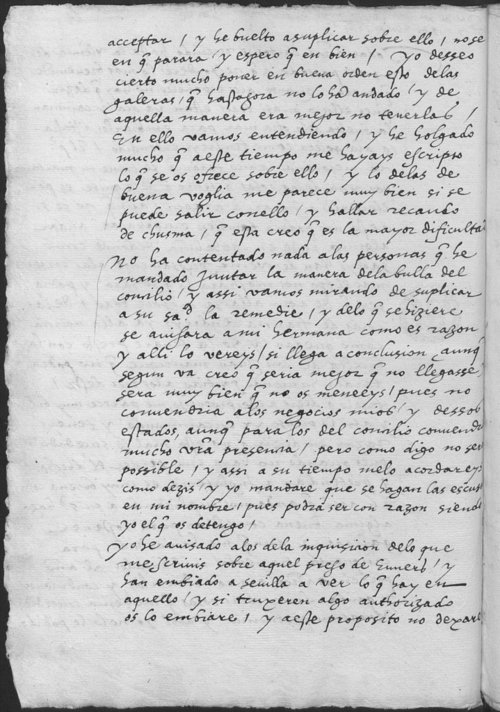 acceptar / y he buelto a suplicar sobre ello / no se
en q̃ parara / y espero q̃ en bien / yo desseo
cierto mucho poner en buena orden esto de las
galeras / q̃ hastagora no lo ha andado / y de
aquella manera era mejor no tenerlas /
En ello vamos entendiendo / y he holgado
mucho q̃ a este tiempo me hayays escripto
lo q̃ se os ofrece sobre ello / y lo de las de
buena voglia me parece muy bien si se
puede salir con ello / y hallar recaudo
de chusma / q̃ esta creo q̃ es la mayor dificulta
No ha contentado nada a las personas q̃ he
mandado juntar la manera de la bulla del
concilio / y assi vamos mirando de suplicar
a su sa.d la remedie / y de lo q̃ se hiziere
se avisara a mi hermana como es razon
y alli lo vereys / si llega a conclusion aunq̃
segun va creo q̃ seria mejor q̃ no llegasse
sera muy bien q̃ no os meneeys / pues no
convendria a los negocios mios / y dessos
estados, aunq̃ para los del concilio convendr
mucho vr̃a presencia / pero como digo no ser
possible / y assi a su tiempo me lo acordareys
como dezis / y yo mandare que se hagan las escus
en mi nombre / pues podra ser con razon siendo
yo el q̃ os detengo /
Yo he avisado a los de la inquisicion de lo que
me scrivis sobre aquel preso de / y
han embiado a sevilla a ver lo q̃ hay en
aquello / y si truxeren algo authorizado
os lo embiare / y a este proposito no dexar